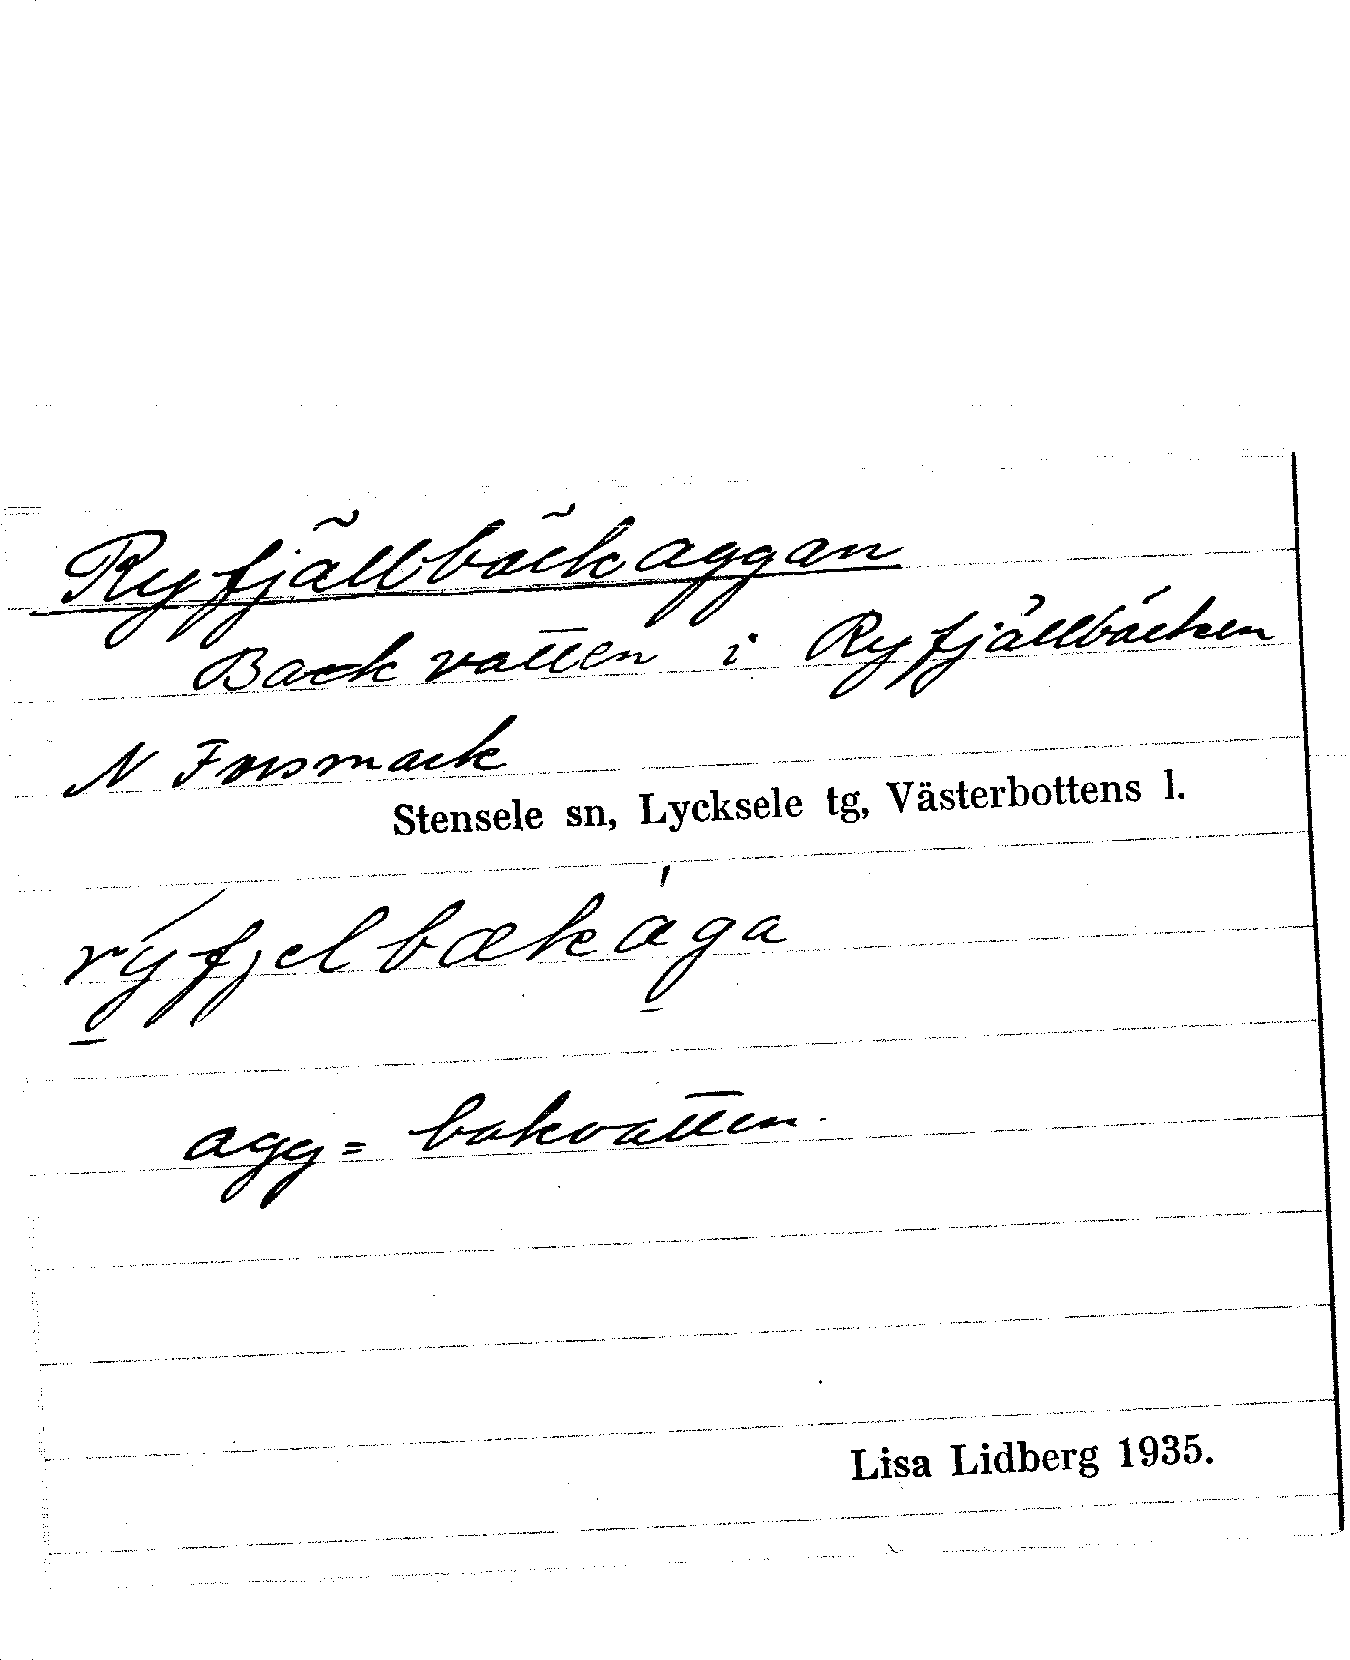 Ryfjällbäckaggan
Backvatten i Ryfjällbäcken
N Forsmark
Stensele sn, Lycksele tg, Västerbottens l.
rý̲fjelbæka̲̍ga
agg = bakvatten.
Lisa Lidberg 1935.